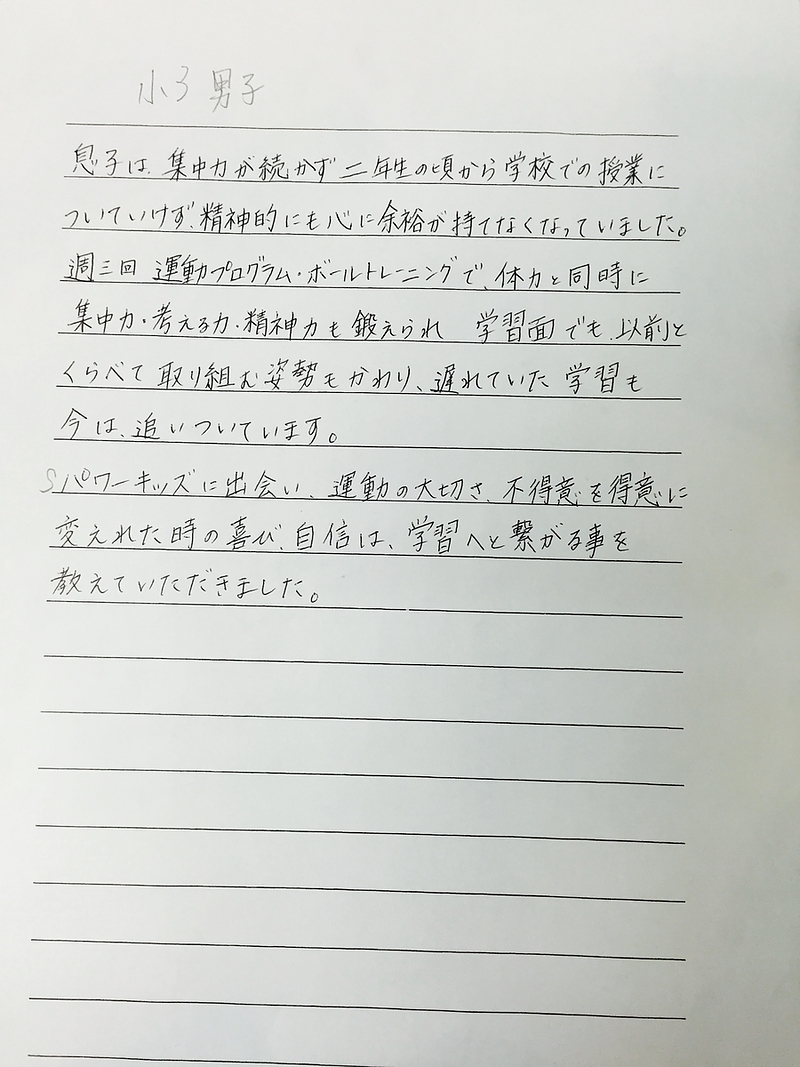 小3 男子
息子は、集中力が続かず二年生の頃から学校での授業に
ついていけず、精神的にも心に余裕が持てなくなっていました。
週三回 運動プログラム・ボールトレーニングで、体力と同時に
集中力・考える力・精神力も鍛えられ 学習面でも、以前と
くらべて取り組む姿勢もかわり、遅れていた学習も
今は、追いついています。
Sパワーキッズに出会い、運動の大切さ、不得意を得意に
変えれた時の喜び、自信は、学習へと繋がる事を
教えていただきました。